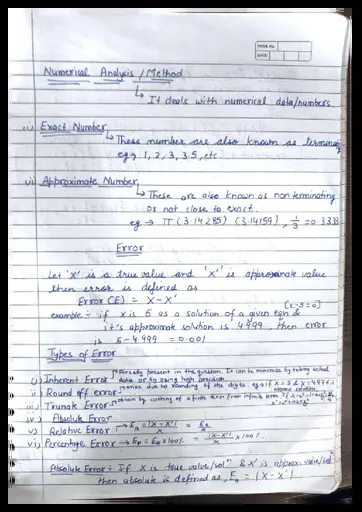 PAGE No.
DATE
Numerical Analysis / Method
↳ It deals with numerical data/numbers.
Exact Number
↳ These number are also known as
eg → 1, 2, 3, 3.5, etc
Approximate Number
↳ These are also known as non terminating
or not close to exact.
eg → π (3.14285) (3.14159), 1/3 = 0.3333
Error
Let 'X' is a true value and 'X'' is approximate value
then error is defined as
Error (E) = X - X'
[x-5=0]
example ÷ if x is 5 as a solution of a given eqn &
it's approximate solution is 4.999, then error
is 5 - 4.999 = 0.001
Types of Error
i) Inherent Error → Already present in the question. It can be minimize by taking actual
data or by using high precision
ii) Round off error → arise due to rounding of the digits. eg → if X = 5 &
iii) Trunate Error → obtain by cutting of a finite term from infinite term
iv) Absolute Error
v) Relative Error → E_R = |X-X'|/X = E_A/X
vi) Percentage Error → E_P = E_R × 100% = |X-X'|/X × 100%
Absolute Error ÷ If X is true value/sol^n & X' is approx. value/sol
then absolute is defined as, E_A = |X - X'|